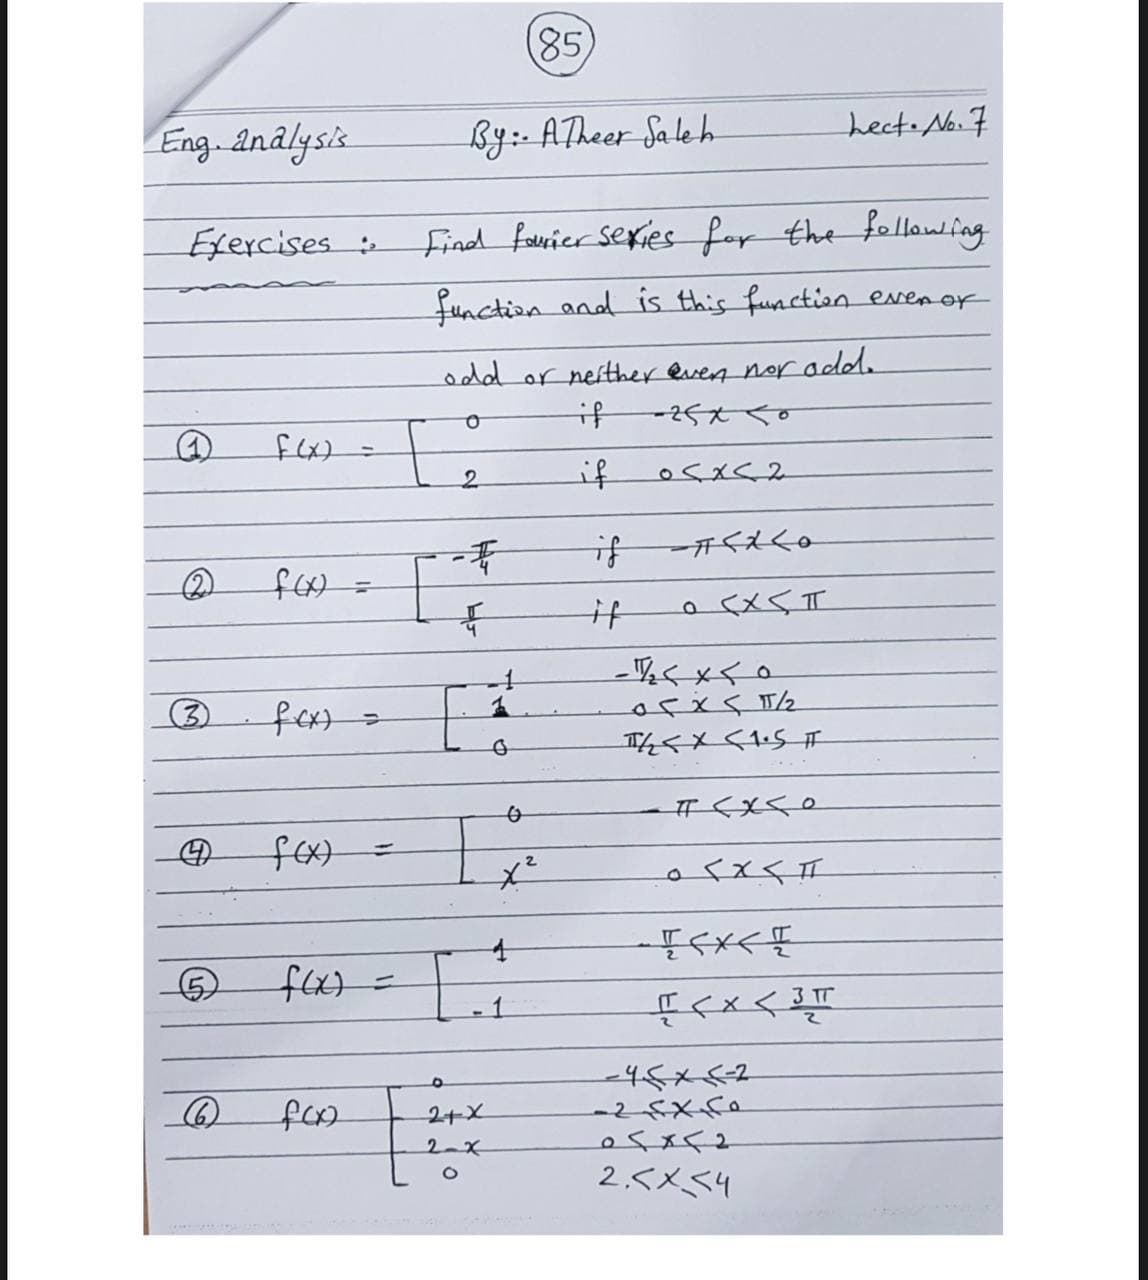 85
Eng. analysis By:. ATheer Saleh Lect. No. 7
Exercises :. Find fourier series for the following
function and is this function even or
odd or neither even nor odd.
① f(x) = [ 0 if -2<x<0
2 if 0<x<2
② f(x) = [ -π/4 if -π<x<0
π/4 if 0<x<π
③ f(x) = [ -1 -π/2<x<0
1 0<x<π/2
0 π/2<x<1.5π
④ f(x) = [ 0 -π<x<0
x² 0<x<π
⑤ f(x) = [ 1 -π/2<x<π/2
-1 π/2<x<3π/2
⑥ f(x) [ 0 -4≤x≤-2
2+x -2≤x≤0
2-x 0≤x≤2
0 2≤x≤4